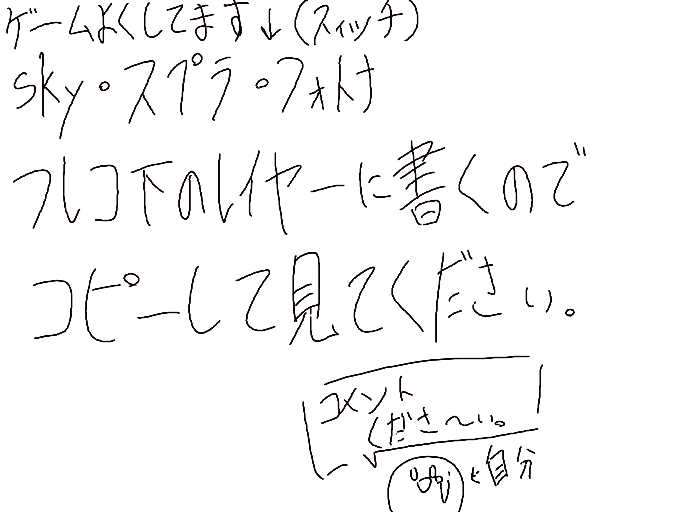 ゲームよくしてます↓(スイッチ)
sky・スプラ・フォトナ
フレコ下のレイヤーに書くので
コピーして見てください。
コメント
くださ〜い。
と自分